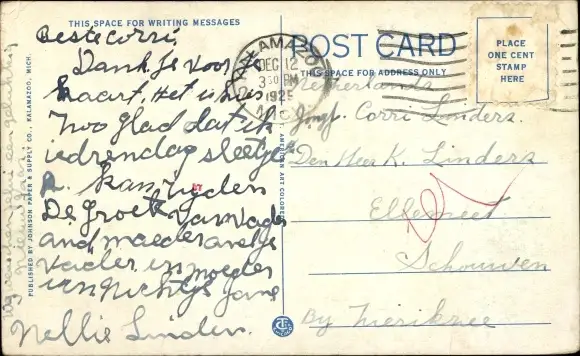 THIS SPACE FOR WRITING MESSAGES
Beste corri,
Dank je voor
kaart. Het is hier
zoo glad dat ik
iedren dag sleetje
kan ryden
De groete van vader
and moeder and je
vader en moeder
en Nichtje Jane
Nellie Linden.
PUBLISHED BY JOHNSON PAPER & SUPPLY CO., KALAMAZOO, MICH.
KALAMAZOO
DEC 12
3 30 PM
1925
MICH.
POST CARD
THIS SPACE FOR ADDRESS ONLY
PLACE
ONE CENT
STAMP
HERE
Netherlands
Jongf. Corri Linders.
Den Heer K. Linders
Ellemeet
Schouwen
By Zierikzee
AMERICAN ART COLORED